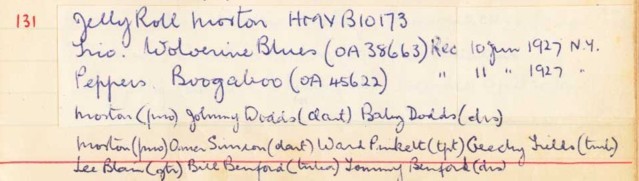 131 Jelly Roll Morton HMV B10173
Trio. Wolverine Blues (OA 38663) Rec 10 Jun 1927 N.Y.
Peppers. Boogaboo (OA 45622) " 11 " 1927 "
Morton (pno) Johnny Dodds (clart) Baby Dodds (drs)
Morton (pno) Omer Simeon (clart) Ward Pinkett (tpt) Geechy Fields (tmb)
Lee Blair (gtr) Bill Benford (tuba) Tommy Benford (drs)